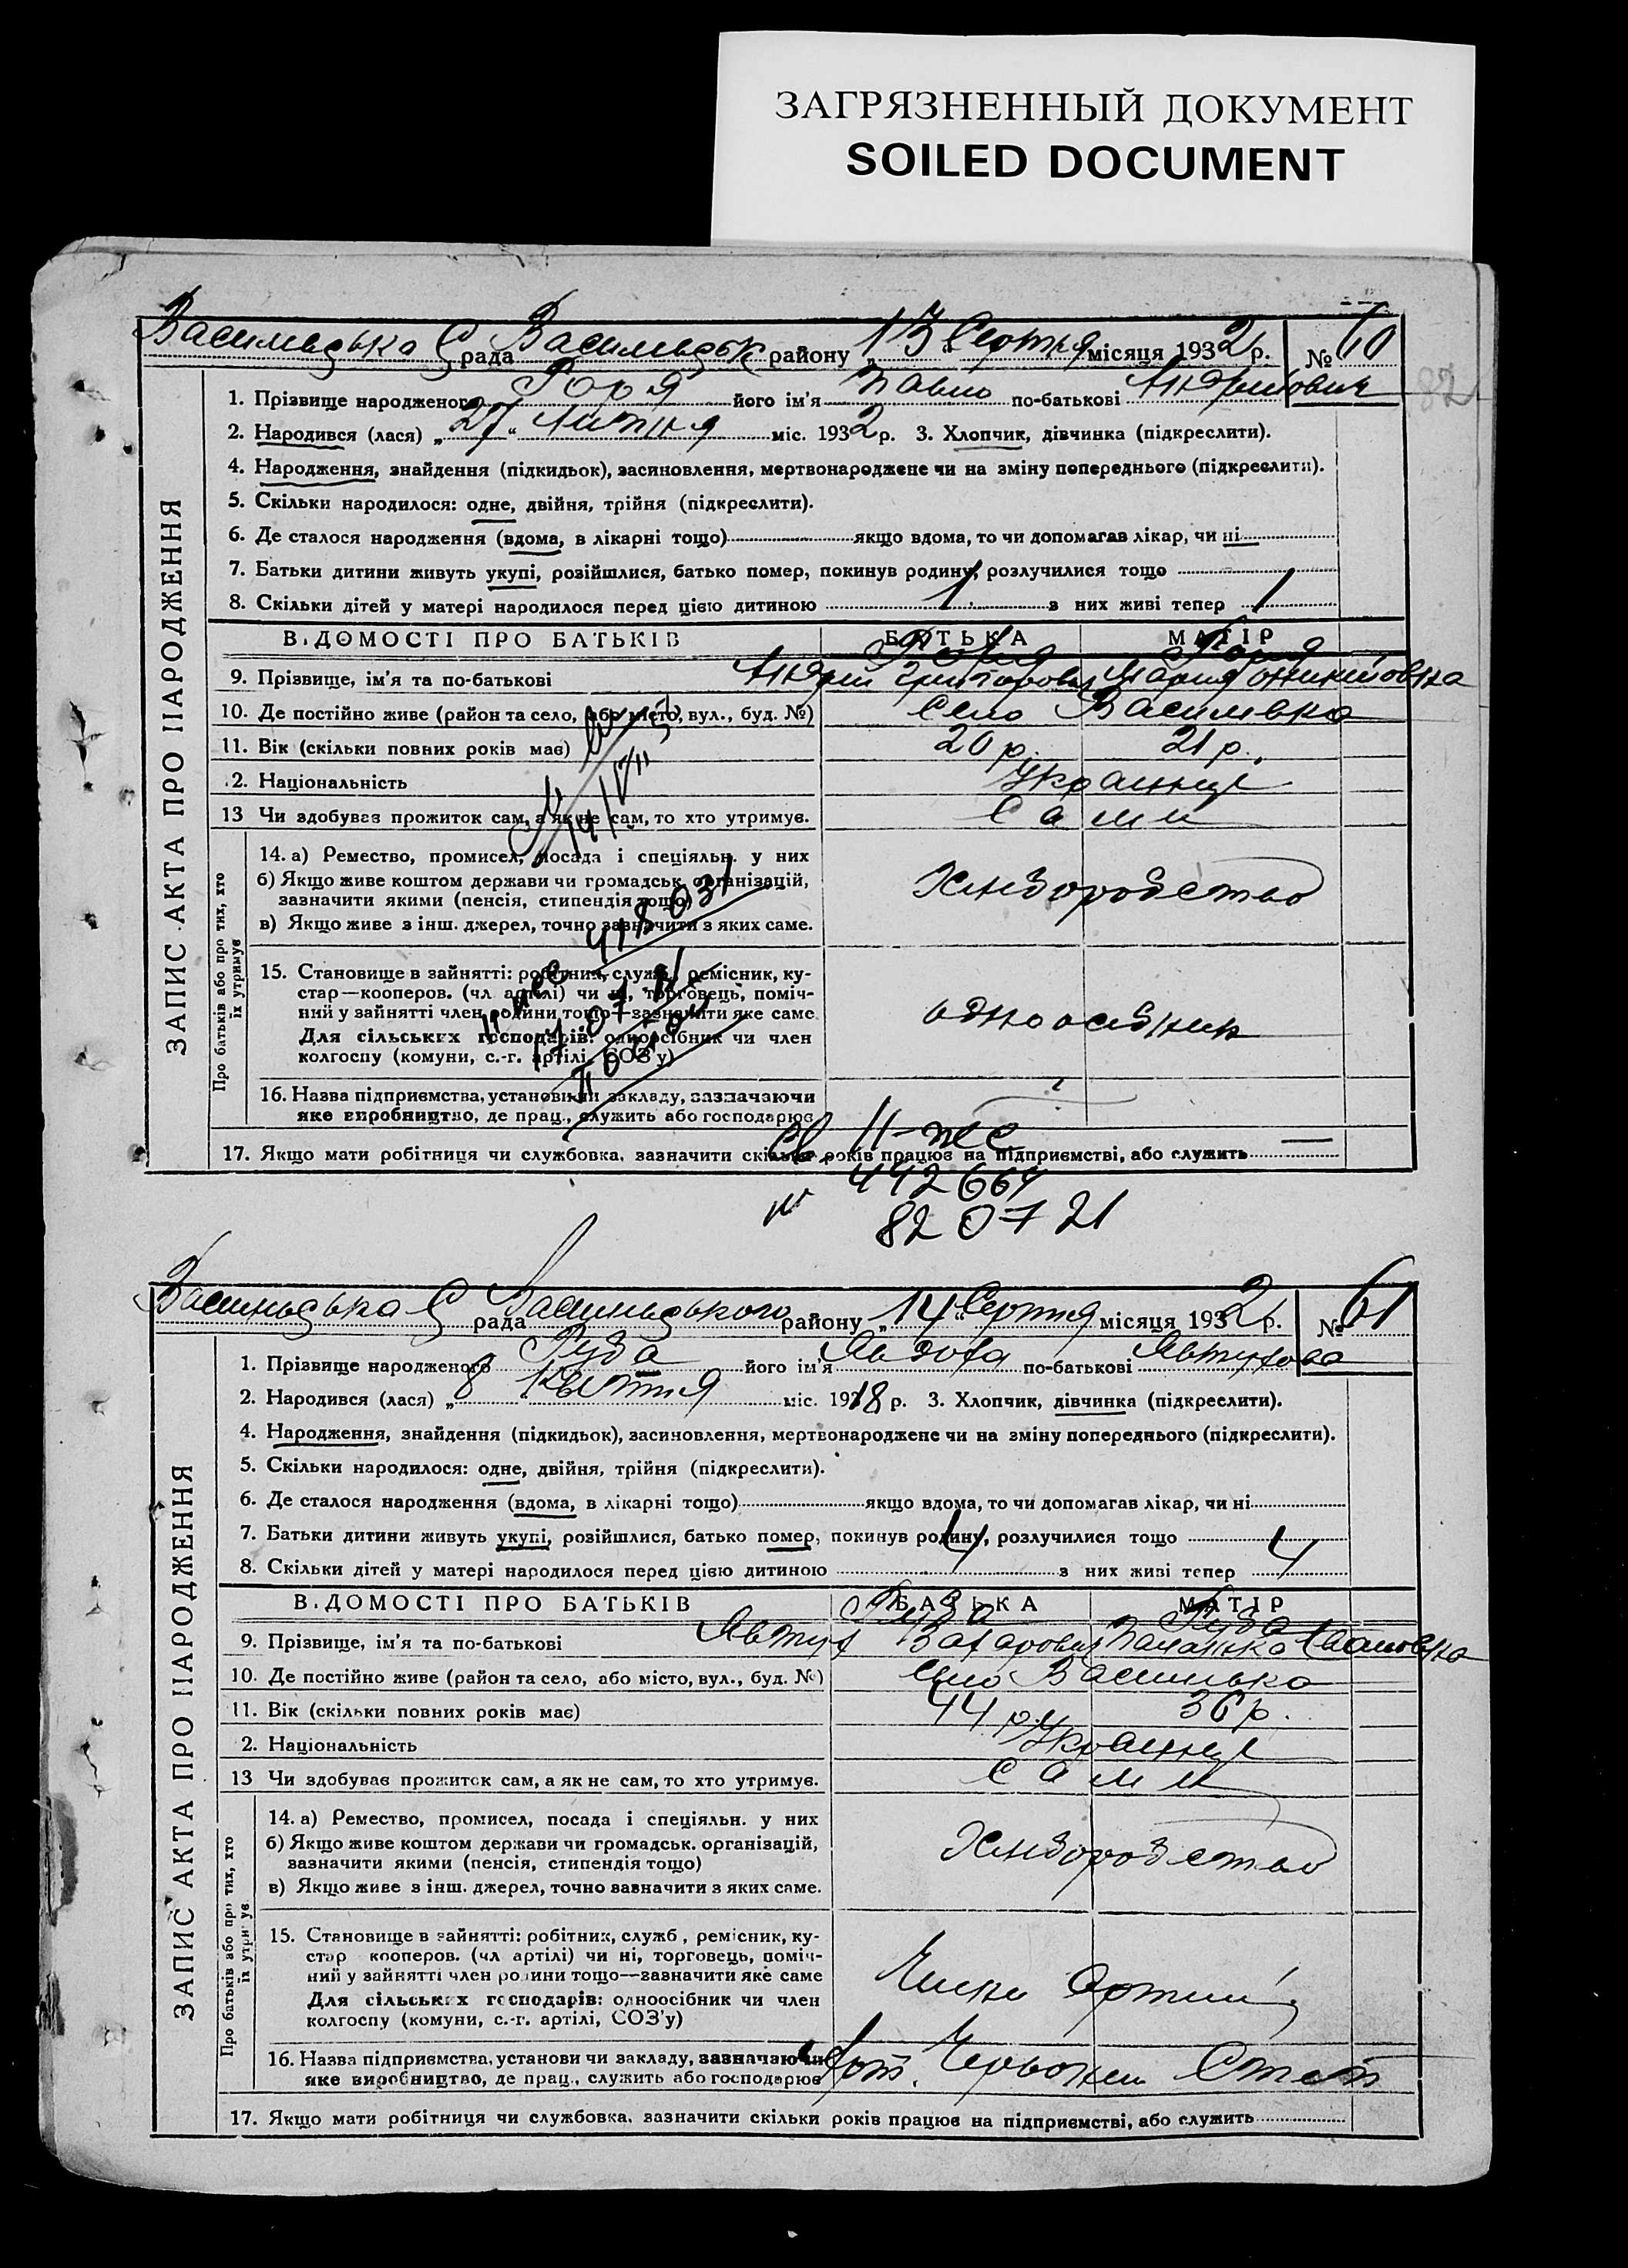 ЗАГРЯЗНЕННЫЙ ДОКУМЕНТ
SOILED DOCUMENT
Василівська С рада Василівськ району „13“ Серпня місяця 1932 р. № 60
82
1. Прізвище народженого Горя його ім'я Павло по-батькові Андрійович
2. Народився (лася) „27“ Липня міс. 1932 р. 3. Хлопчик, дівчинка (підкреслити).
4. Народження, знайдення (підкидьок), засиновлення, мертвонароджене чи на зміну попереднього (підкреслити).
5. Скільки народилося: одне, двійня, трійня (підкреслити).
6. Де сталося народження (вдома, в лікарні тощо) якщо вдома, то чи допомагав лікар, чи ні
7. Батьки дитини живуть укупі, розійшлися, батько помер, покинув родину, розлучилися тощо
8. Скільки дітей у матері народилося перед цією дитиною 1 з них живі тепер 1
ЗАПИС АКТА ПРО НАРОДЖЕННЯ
В.ДОМОСТІ ПРО БАТЬКІВ БАТЬКА МАТІР
Горя Горя
9. Прізвище, ім'я та по-батькові Андрій Григорович Мария
10. Де постійно живе (район та село, або місто, вул., буд. №) Село Василівка
11. Вік (скільки повних років має) 20 р. 21 р.
.2. Національність Українці
13 Чи здобуває прожиток сам, а як не сам, то хто утримує. Сами
Про батьків або про тих, хто їх утримує
14. а) Ремество, промисел, посада і спеціяльн. у них
б) Якщо живе коштом держави чи громадськ. організацій,
зазначити якими (пенсія, стипендія тощо)
в) Якщо живе з інш. джерел, точно зазначити з яких саме.
Хліборобство
15. Становище в зайнятті: робітник, служб., ремісник, ку-
стар—кооперов. (чл артілі) чи ні, торговець, поміч-
ний у зайнятті член родини тощо—зазначити яке саме
Для сільських господарів: одноосібник чи член
колгоспу (комуни, с.-г. артілі, СОЗ'у)
одноосібник
16. Назва підприємства, установи чи закладу, зазначаючи
яке виробництво, де прац., служить або господарює
17. Якщо мати робітниця чи службовка, зазначити скільки років працює на підприємстві, або служить —
418031
II-ЖС
№ 442664
820721
Василівська С рада Василівського району „14“ Серпня місяця 1932 р. № 61
1. Прізвище народженого Руда його ім'я Явдоха по-батькові Явтухова
2. Народився (лася) „8 Квітня міс. 1918 р. 3. Хлопчик, дівчинка (підкреслити).
4. Народження, знайдення (підкидьок), засиновлення, мертвонароджене чи на зміну попереднього (підкреслити).
5. Скільки народилося: одне, двійня, трійня (підкреслити).
6. Де сталося народження (вдома, в лікарні тощо) якщо вдома, то чи допомагав лікар, чи ні
7. Батьки дитини живуть укупі, розійшлися, батько помер, покинув родину, розлучилися тощо
8. Скільки дітей у матері народилося перед цією дитиною 4 з них живі тепер 4
ЗАПИС АКТА ПРО НАРОДЖЕННЯ
В.ДОМОСТІ ПРО БАТЬКІВ БАТЬКА МАТІР
Руда Руда
9. Прізвище, ім'я та по-батькові Явтух Захарович Палажка Івановна
10. Де постійно живе (район та село, або місто, вул., буд. №) Село Василівка
11. Вік (скільки повних років має) 44 р. 36 р.
2. Національність Українці
13 Чи здобуває прожиток сам, а як не сам, то хто утримує. Сами
Про батьків або про тих, хто їх утримує
14. а) Ремество, промисел, посада і спеціяльн. у них
б) Якщо живе коштом держави чи громадськ. організацій,
зазначити якими (пенсія, стипендія тощо)
в) Якщо живе з інш. джерел, точно зазначити з яких саме.
Хліборобство
15. Становище в зайнятті: робітник, служб., ремісник, ку-
стар кооперов. (чл артілі) чи ні, торговець, поміч-
ний у зайнятті член родини тощо—зазначити яке саме
Для сільських господарів: одноосібник чи член
колгоспу (комуни, с.-г. артілі, СОЗ'у)
Члени Артілі
16. Назва підприємства, установи чи закладу, зазначаючи
яке виробництво, де прац., служить або господарює
Арт. Червоний Степ
17. Якщо мати робітниця чи службовка, зазначити скільки років працює на підприємстві, або служить